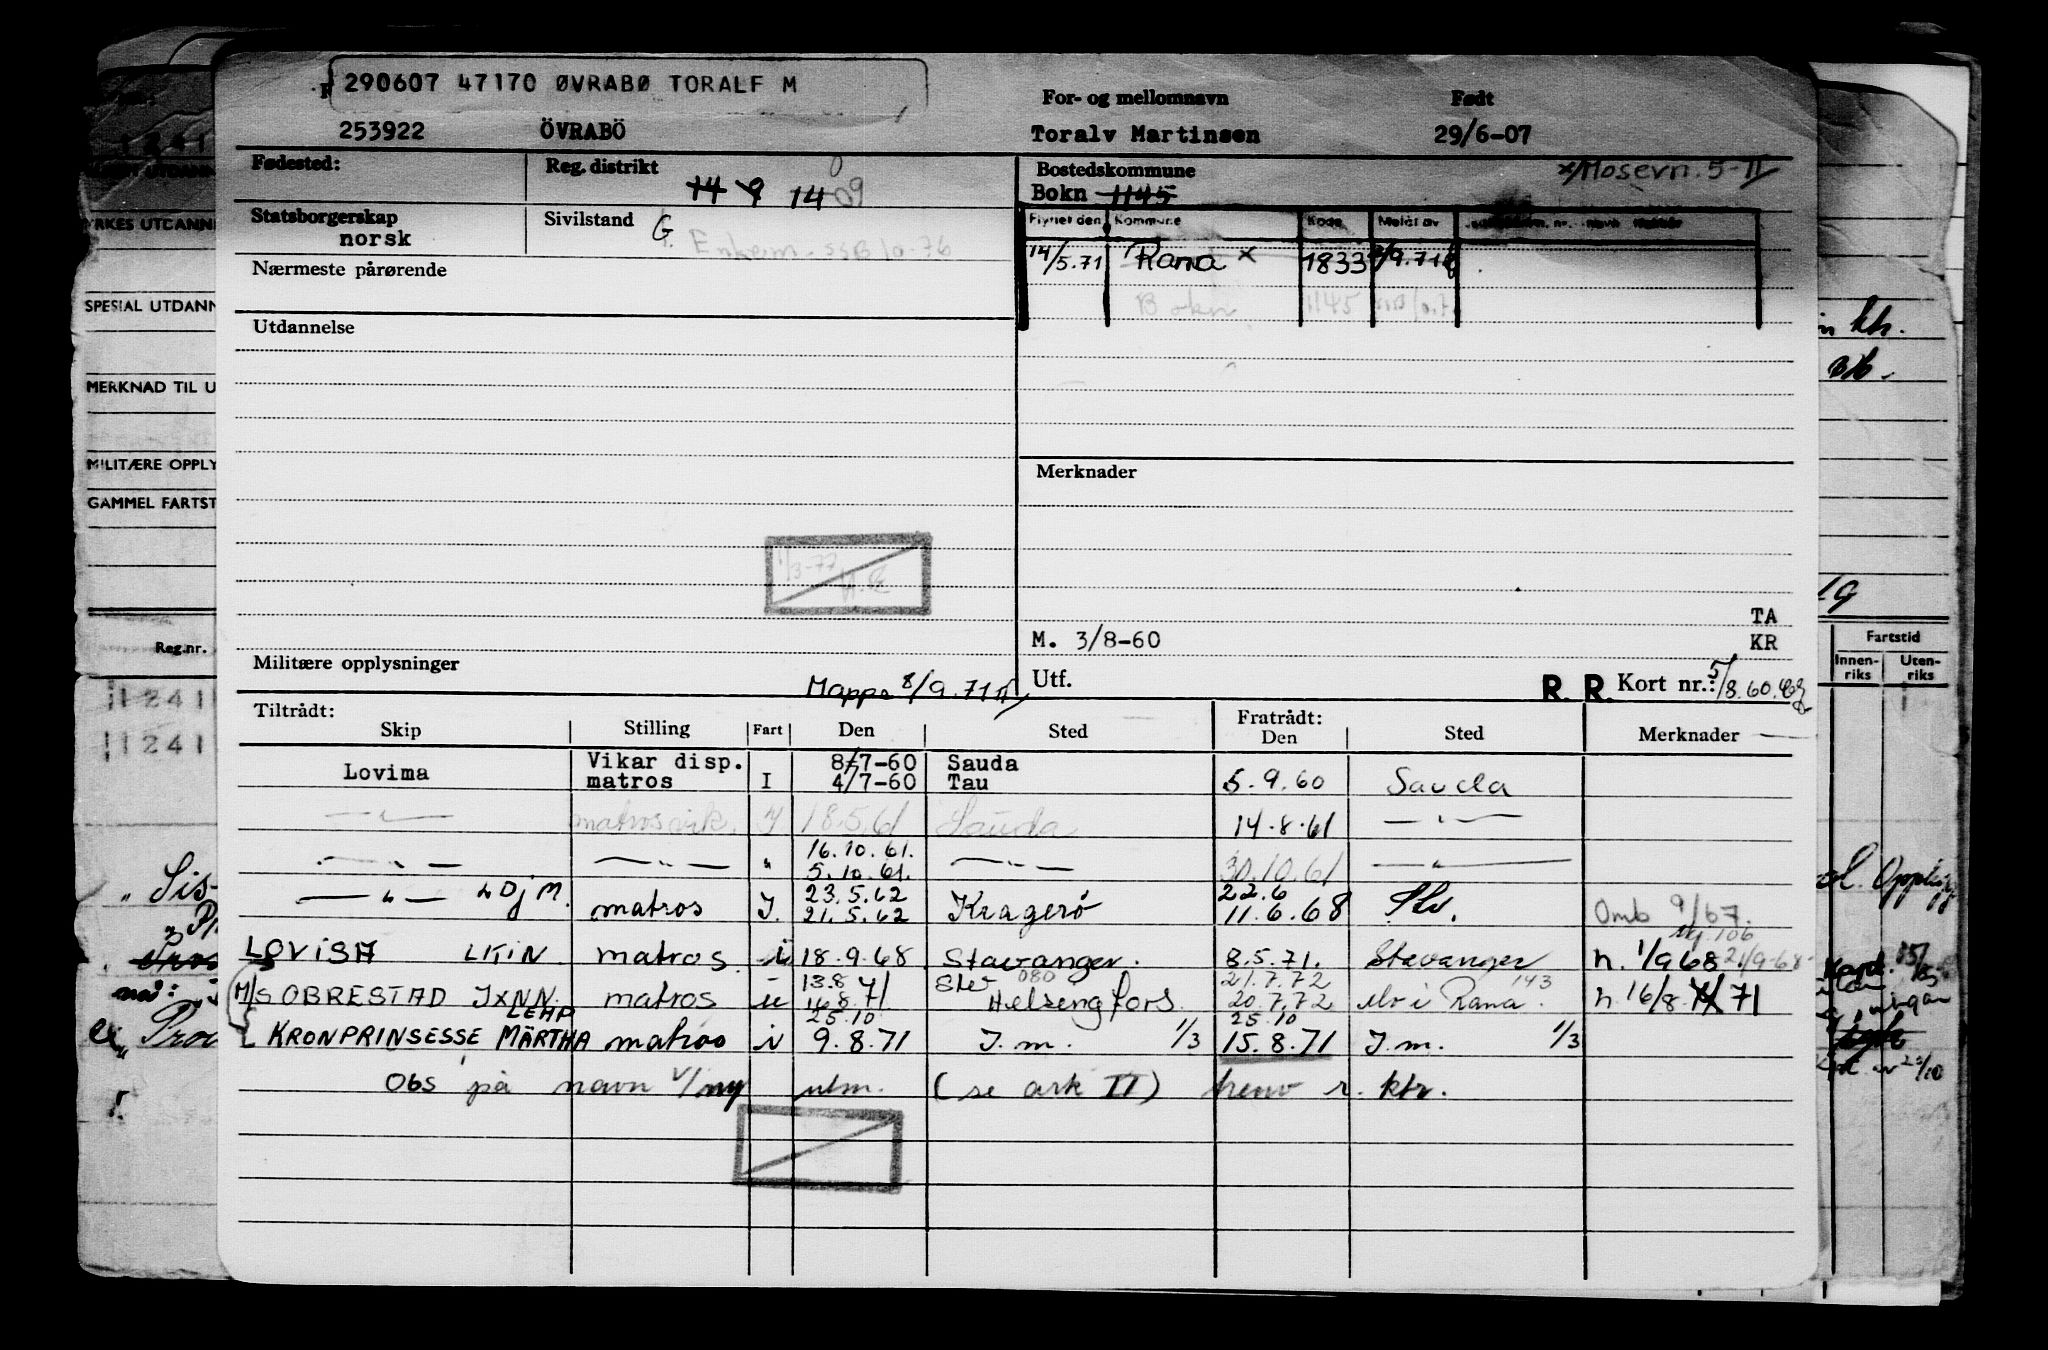 290607 47170 ØVRABØ TORALF M
253922 ÖVRABÖ
For- og mellomnavn Født
Toralv Martinsen 29/6-07
Fødested: Reg. distrikt 14 9 14 09
Statsborgerskap norsk Sivilstand G
Enkem. SSB 10-76
Nærmeste pårørende
Utdannelse
Militære opplysninger
Mappe 8/9.71
Bostedskommune x/Mosevn. 5-II
Bokn 1145
Flyttet den Kommune Kode Meldt av
14/5.71 Rana x 1833 /9.71
Bokn 1145
Merknader
TA
M. 3/8-60 KR
Utf. R. R. Kort nr.: 5/8.60
1/3-77
Tiltrådt: Fratrådt:
Skip Stilling Fart Den Sted Den Sted Merknader
Vikar disp. 8/7-60 Sauda
Lovima matros I 4/7-60 Tau 5.9.60 Sauda
— " — matrosvik. I 18.5.61 Sauda 14.8.61 — " —
16.10.61.
— " — — " — " 5.10.61. — " — 30.10.61 — " —
23.5.62 22.6
— " — LDJM. matros I. 21.5.62 Kragerö 11.6.68 Omb 9/67.
LOVISA LKIN matros i 18.9.68 Stavanger. 8.5.71. Stavanger n. 1/9 68 21/9-68
13.8 080 21.7.72 143
M/S OBRESTAD JXNN matros u 16.8.71 Helsengfors 20.7.72 Mo i Rana. n. 16/8.71
LEHP 25.10 25.10
KRONPRINSESSE MÄRTHA matros i 9.8.71 I.m. 1/3 15.8.71 I.m. 1/3
Obs på navn v/ny utm. (se ark II) henv r. ktr.
YRKES UTDANN
SPESIAL UTDANN
MERKNAD TIL U
MILITÆRE OPPLY
GAMMEL FARTST
Reg.nr.
11241
11241
Fartstid
Innen-riks Uten-riks